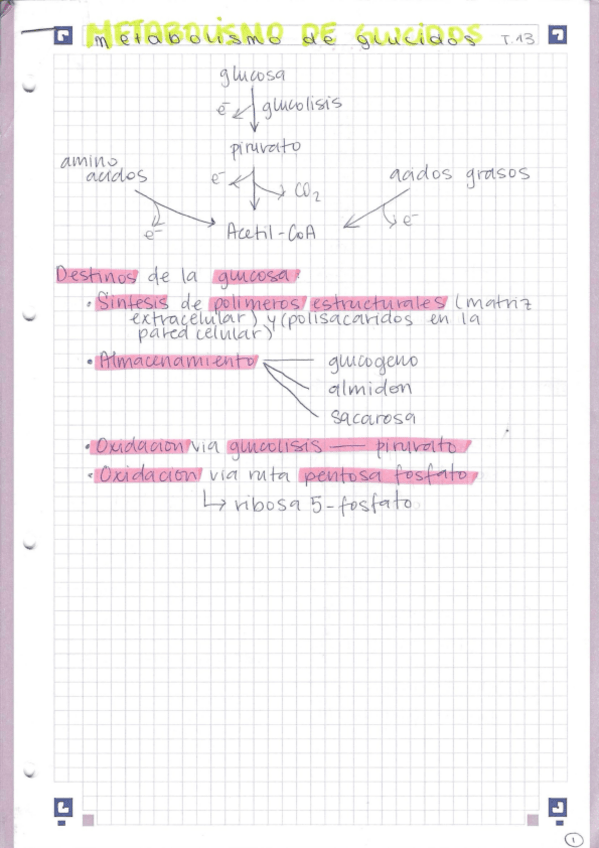 METABOLISMO DE GLUCIDOS T.13
glucosa
e⁻ glucolisis
piruvato
amino
acidos
e⁻ CO₂
acidos grasos
e⁻ Acetil-CoA e⁻
Destinos de la glucosa:
• Sintesis de polimeros estructurales (matriz
extracelular) y (polisacaridos en la
pared celular)
• Almacenamiento glucogeno
almidon
sacarosa
• Oxidacion via glucolisis — piruvato
• Oxidacion via ruta pentosa fosfato
↳ ribosa 5-fosfato
1